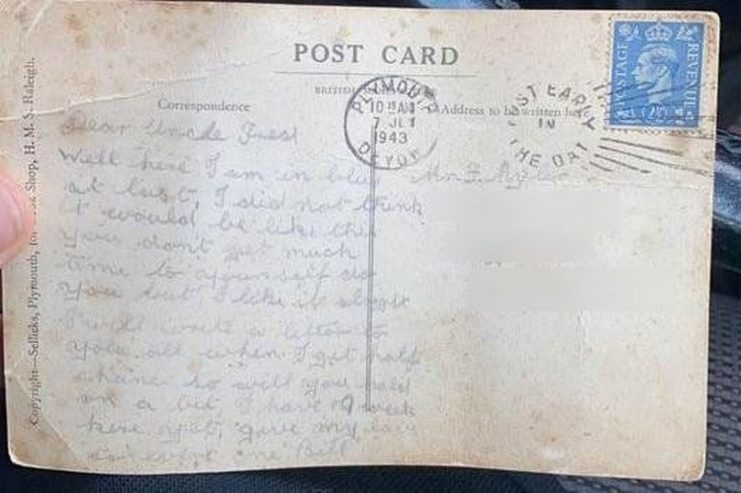 POST CARD
Correspondence
Address to be written here
PLYMOUTH
10 AM
7 JL
1943
DEVON
POST EARLY
IN
THE DAY
POSTAGE
REVENUE
Copyright—Sellicks, Plymouth, Shop, H. M. S. Raleigh.
Dear Uncle
Well here I am in blue
at last, I did not think
it would be like this
you don't get much
time to yourself do
you but I like it alright
I will write a letter to
you all when I get half
chance so will you hold
on a bit, I have 9 week
here yet, give my love
Bill
Mr F.